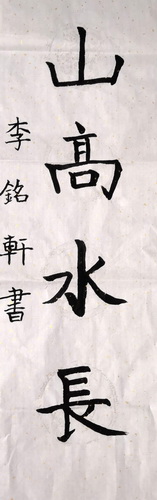 山髙水長
李銘軒書